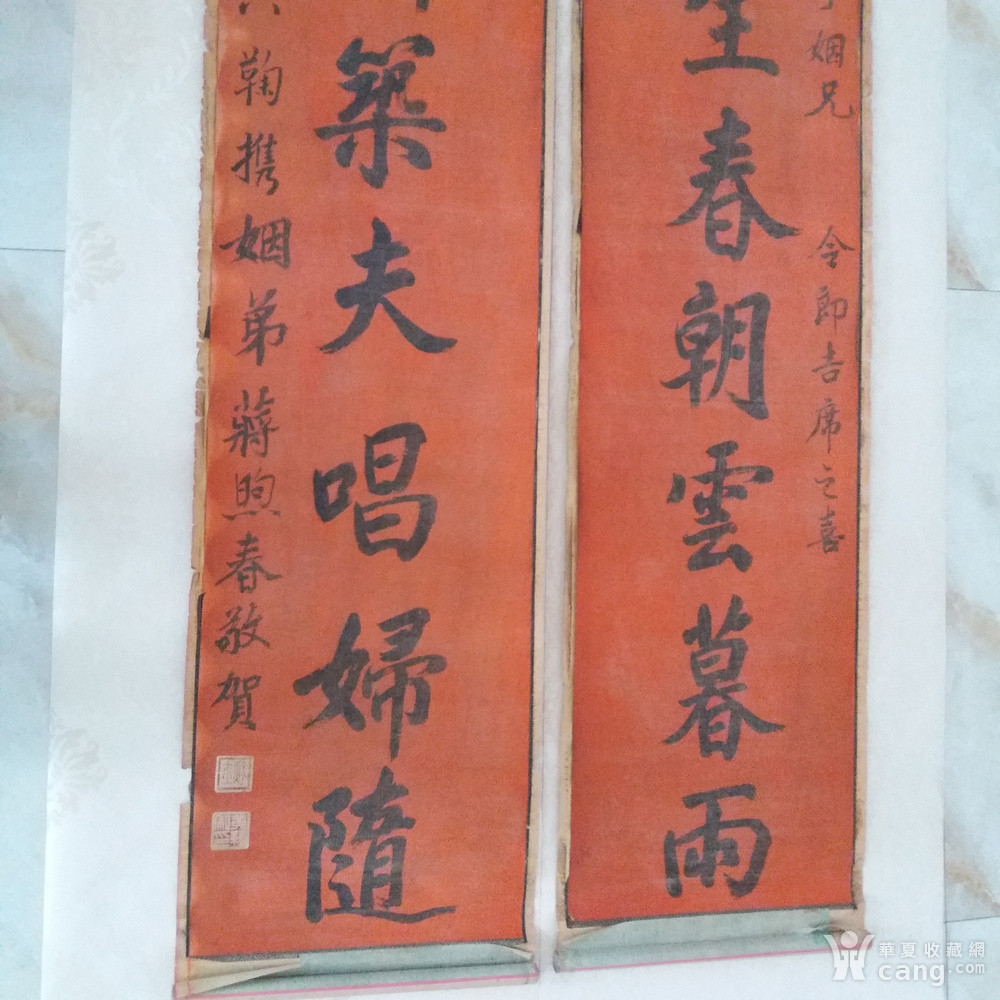 姻兄 令郎吉席之喜
生春朝雲暮雨
築夫唱婦隨
鞠攜姻弟蔣煦春敬賀
華夏收藏網
cang.com